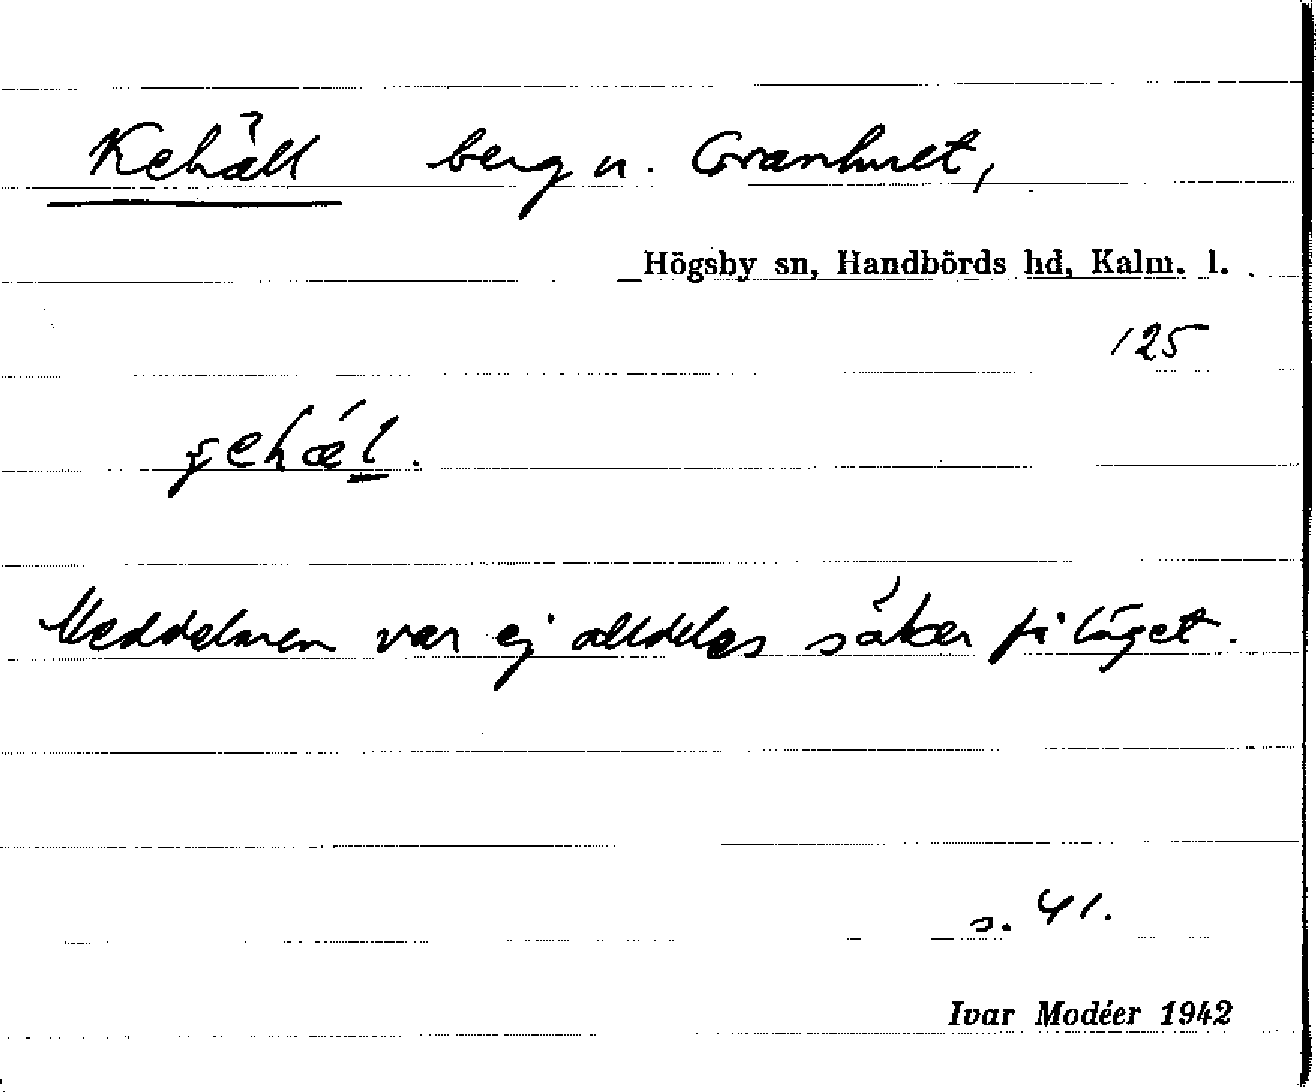 Kehäll berg n. Granhult,
Högsby sn, Handbörds hd, Kalm. l.
125
Meddelaren var ej alldeles säker på läget.
s. 41.
Ivar Modéer 1942